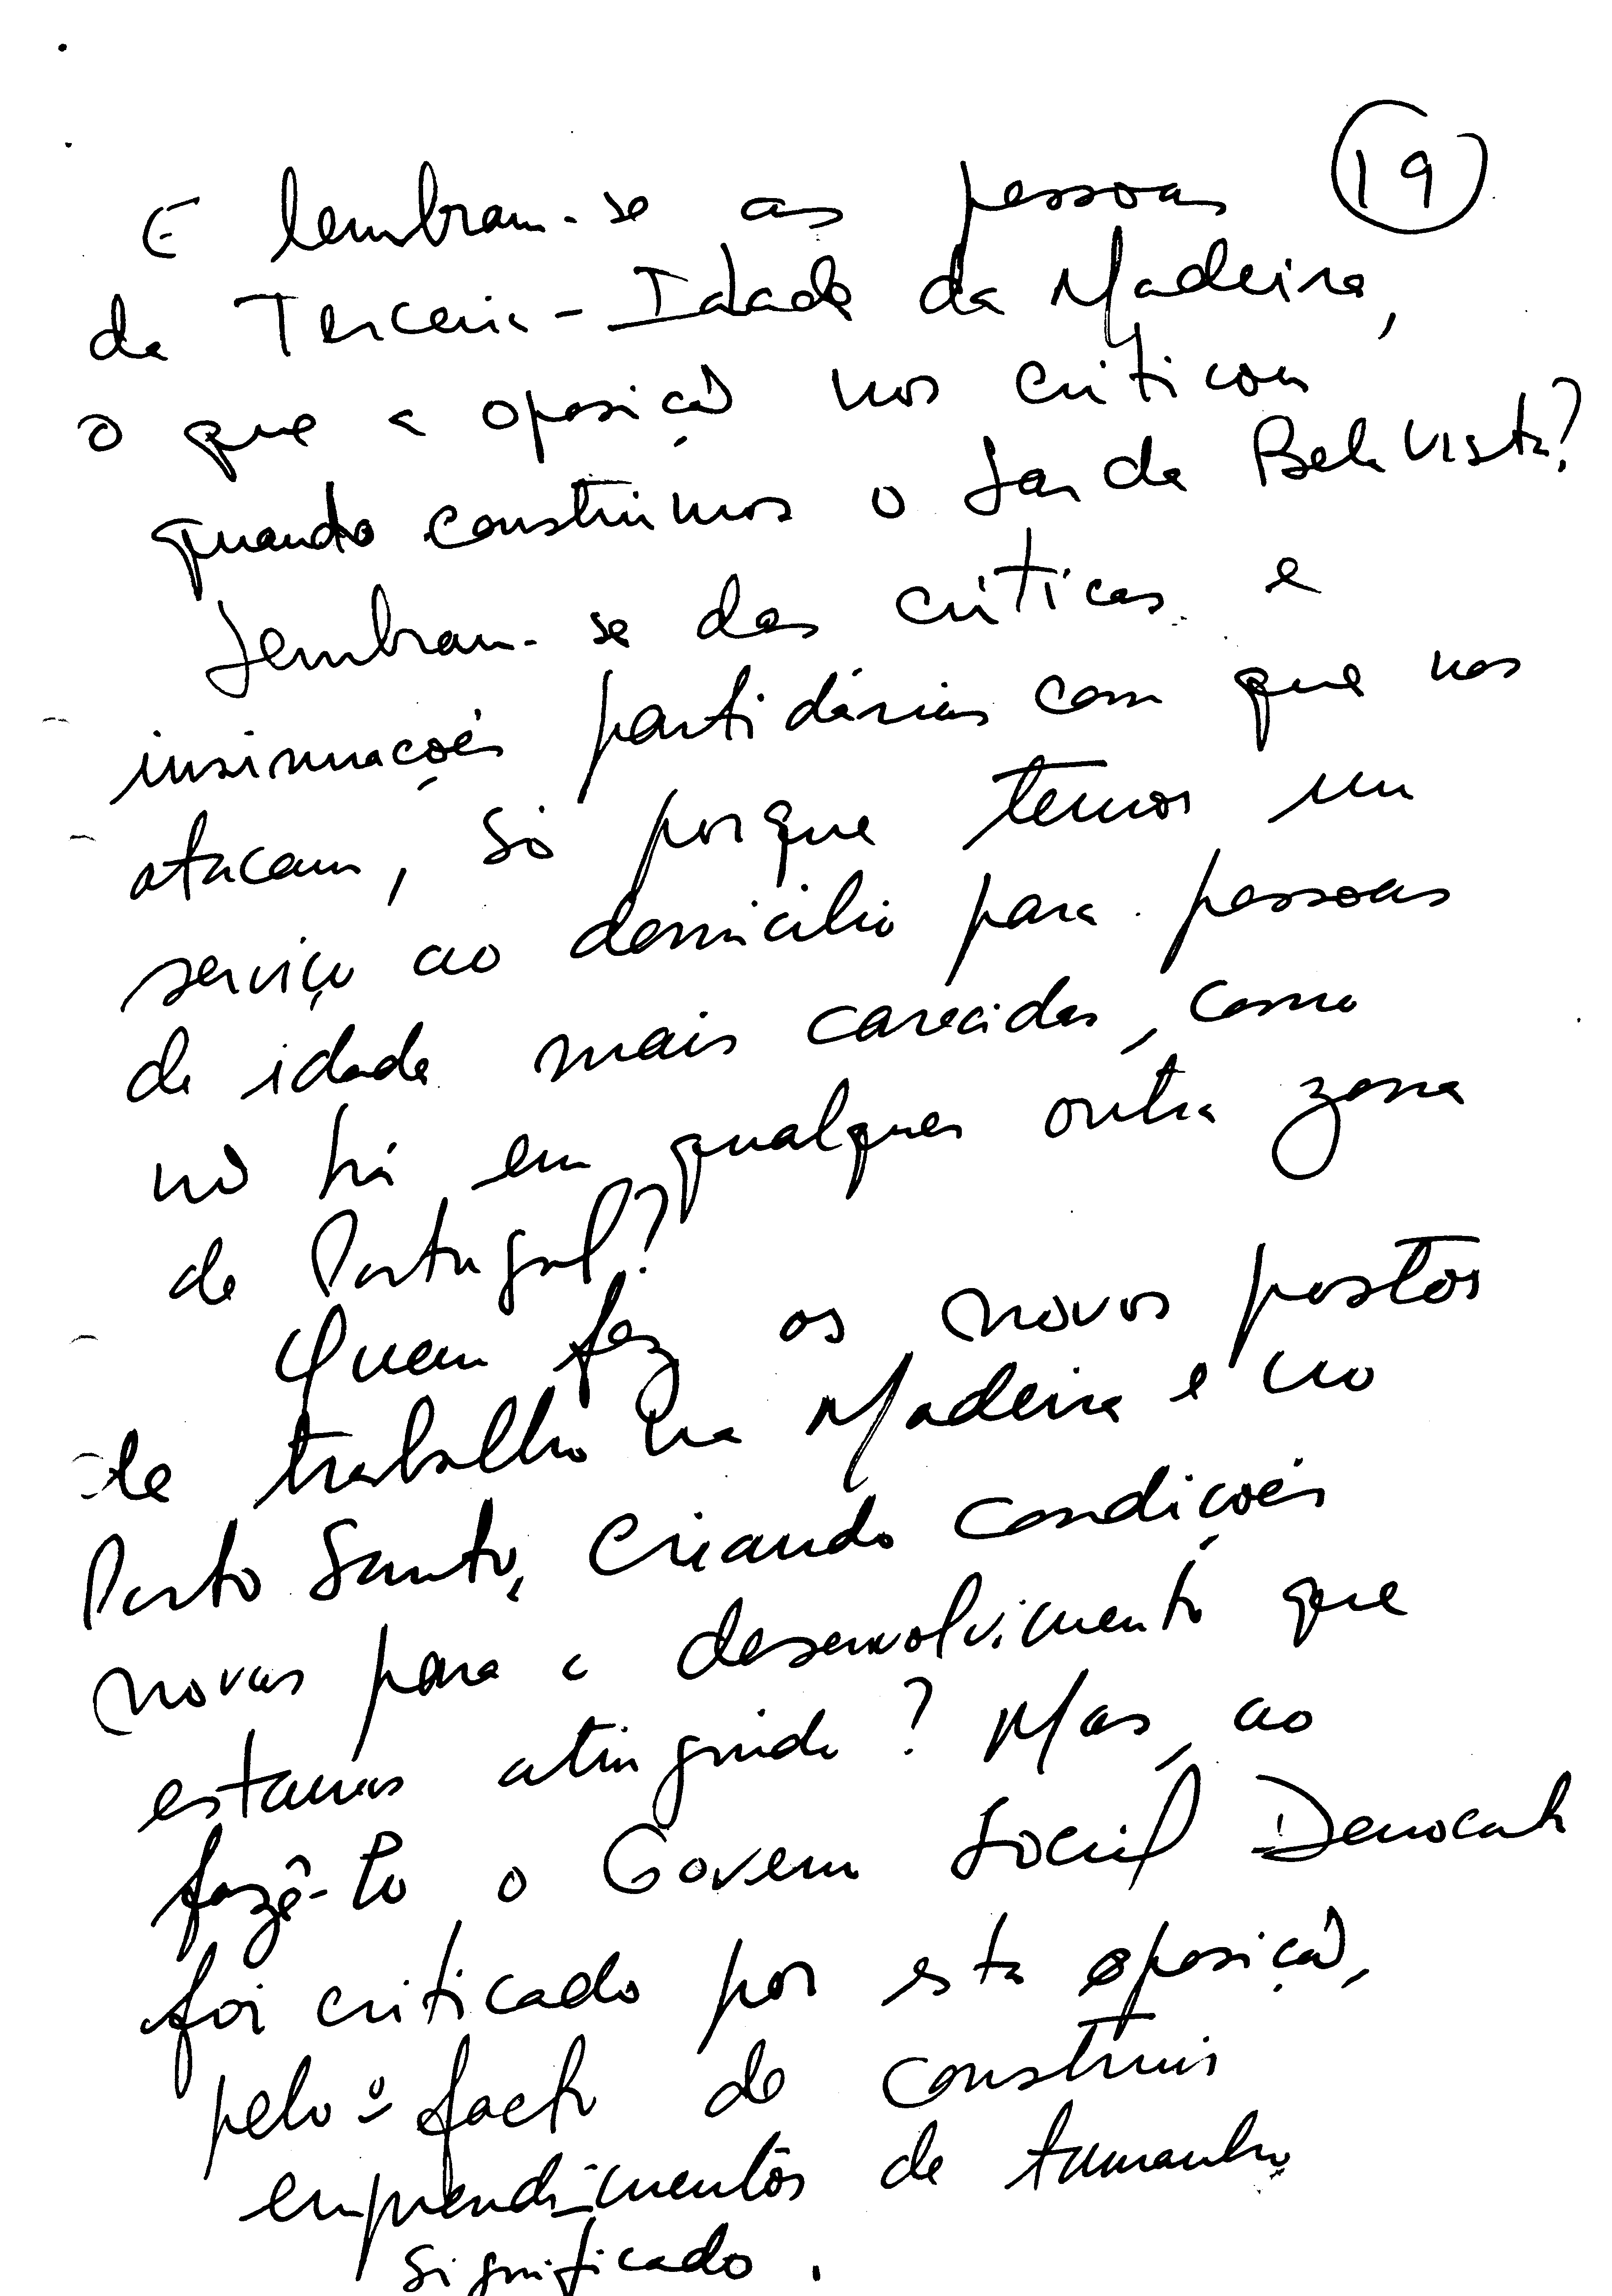 19
E lembram-se as pessoas
da Terceira-Idade da Madeira,
o que a oposição nos criticou
quando construímos o Lar da Bela Vista?
Lembram-se das críticas e
insinuações partidárias com que nos
atacam, só porque temos um
serviço ao domicílio para pessoas
de idade mais carecidas, como
não há em qualquer outra zona
de Portugal?
Quem fez os novos postos
de trabalho na Madeira e no
Porto Santo, criando condições
novas para o desenvolvimento que
estamos atingindo? Mas, ao
fazê-lo o Governo Social Democrata
foi criticado por esta oposição,
pelo facto de construir
empreendimentos de tamanho
significado.